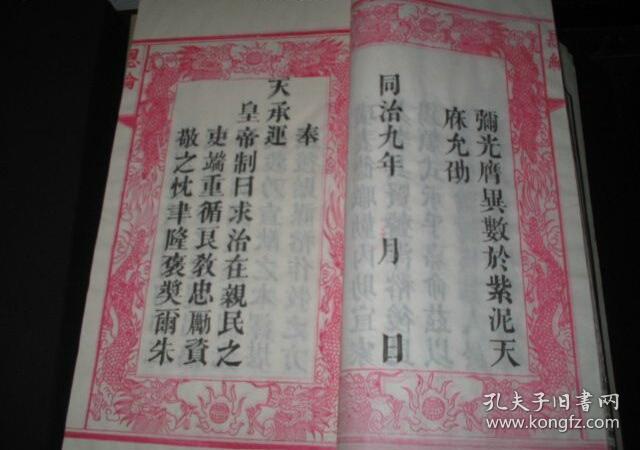 彌光膺異數於紫泥天
庥允劭
同治九年 月 日
奉
天承運
皇帝制曰求治在親民之
吏端重循良教忠勵資
敬之忱聿隆褒奨爾朱
恩綸
孔夫子旧书网
www.kongfz.com